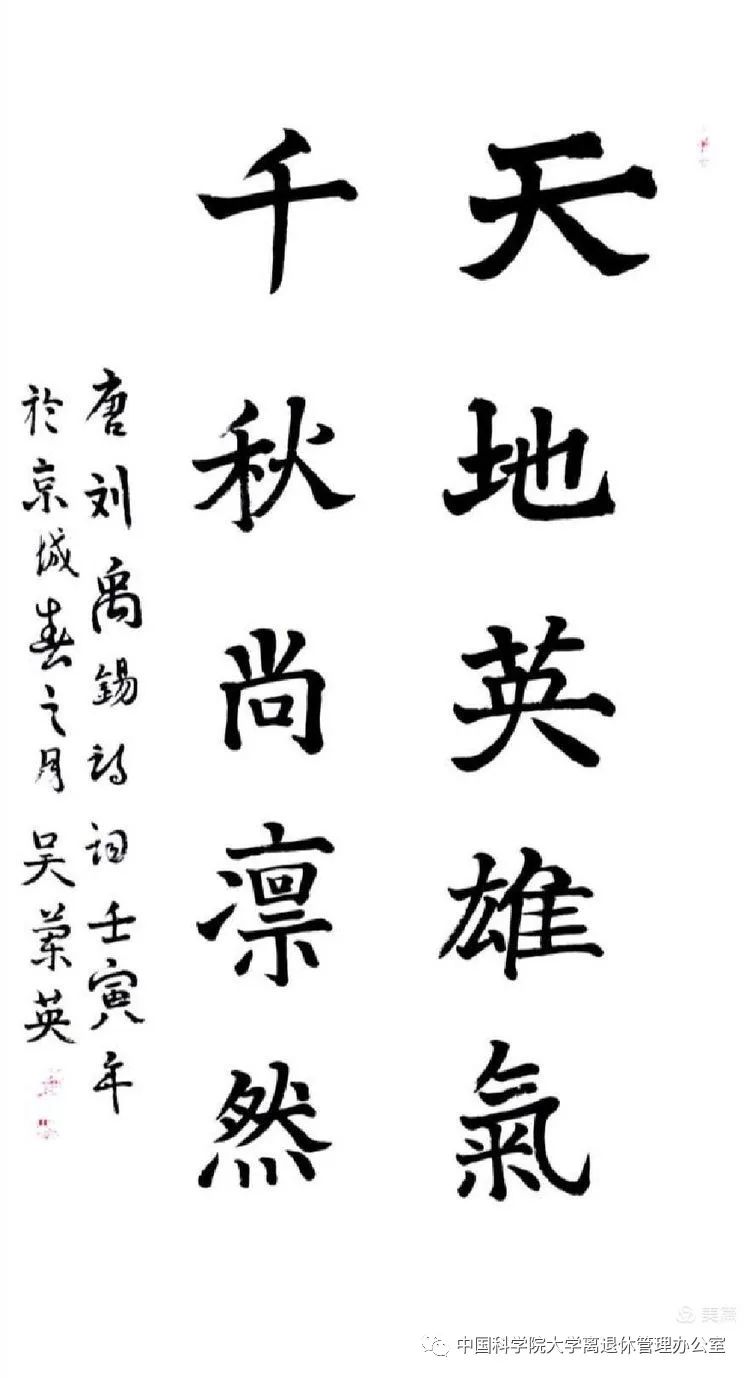 天地英雄氣
千秋尚凛然
唐刘禹錫詩词壬寅年
於京城春之月吴蘭英
美篇
中国科学院大学离退休管理办公室